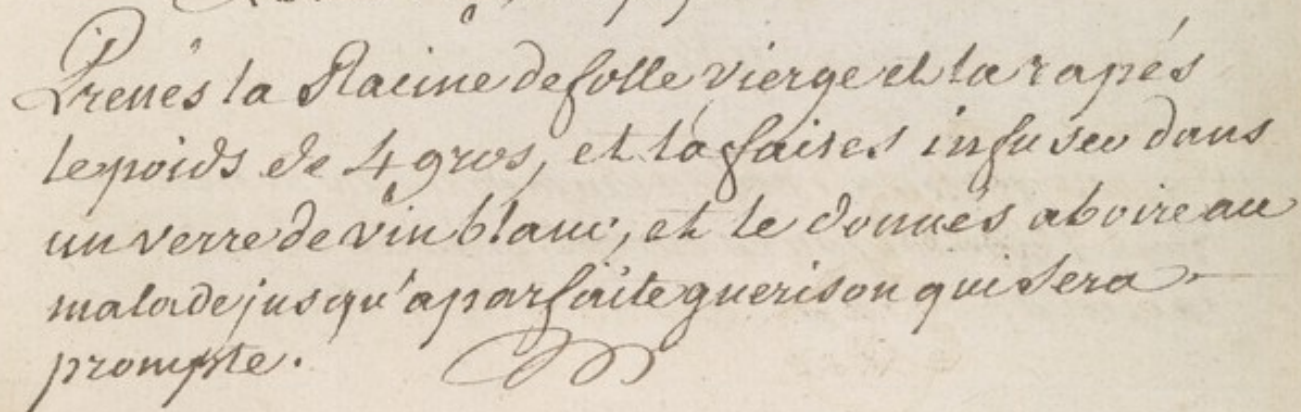 Prenés la Racine de folle vierge et la rapés
le poids de 4 gros, et la faites infuser dans
un verre de vin blanc, et le donnés a boire au
malade jusqu'a parfaite guerison qui sera
prompte.